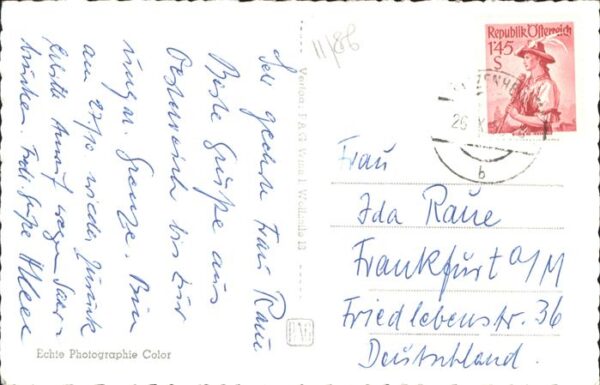 Sehr geehrte Frau Raue
Beste Grüße aus
Österreich bis zur
ungar. Grenze. Bin
am 27/10 wieder zurück
Erbitte Anruf wegen
11/86
Verlag
Republik Österreich
1'45
S
26. X.
b
Frau
Ida Raue
Frankfurt a/M
Friedlebenstr. 36
Deutschland.
Echte Photographie Color